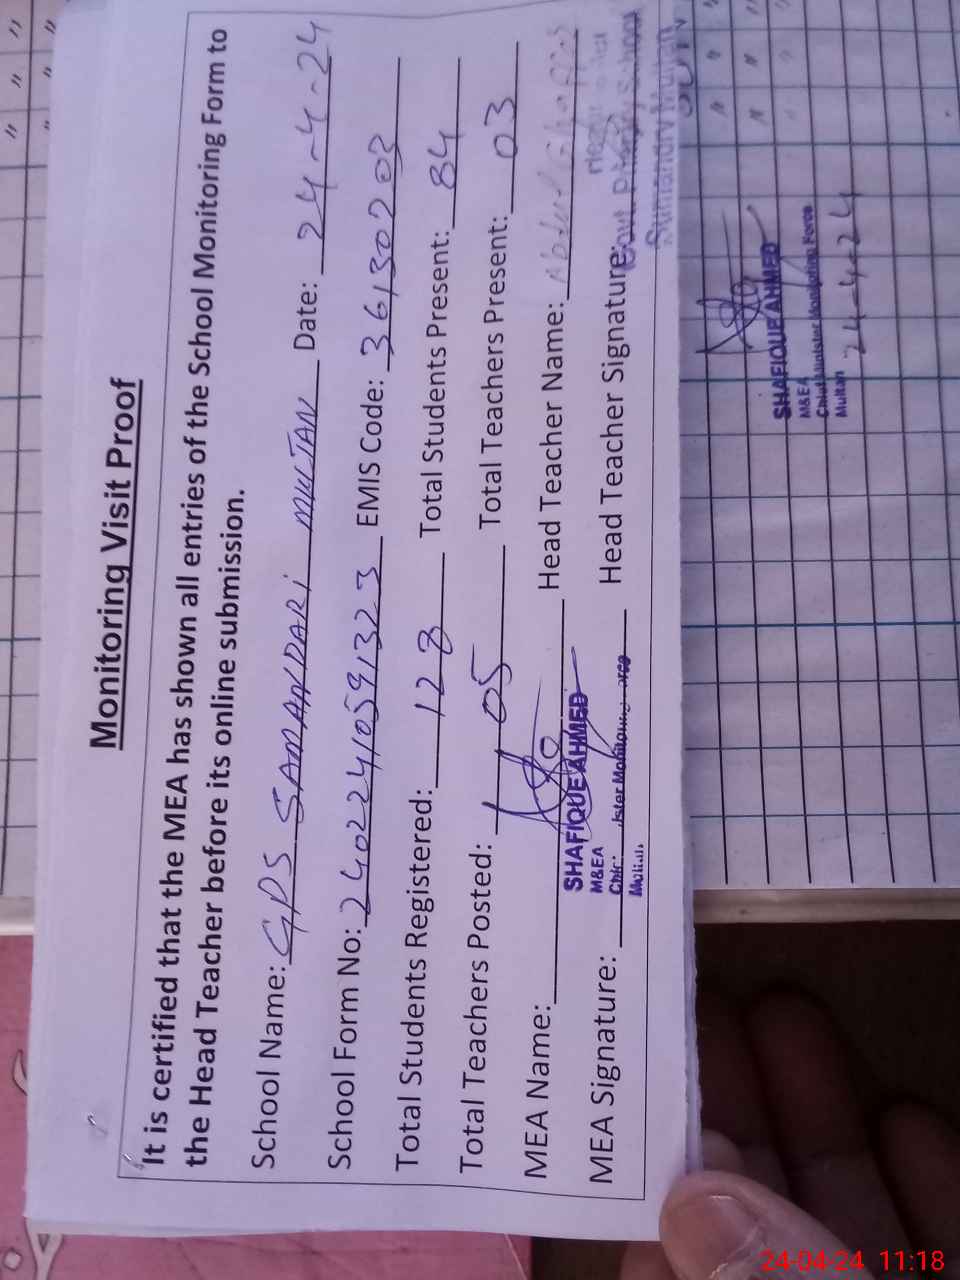 Monitoring Visit Proof
It is certified that the MEA has shown all entries of the School Monitoring Form to
the Head Teacher before its online submission.
School Name: GPS SAMANDARI MULTAN Date: 24-4-24
School Form No: 24022410591323 EMIS Code: 36130202
Total Students Registered: 128 Total Students Present: 84
Total Teachers Posted: 05 Total Teachers Present: 03
MEA Name: Head Teacher Name: Abdul
SHAFIQUE AHMED
M&EA
MEA Signature: Head Teacher Signature:
Multan
Govt. Primary School
SHAFIQUE AHMED
M&EA
Chief Minister Monitoring Force
Multan
24-4-24
24-04-24 11:18